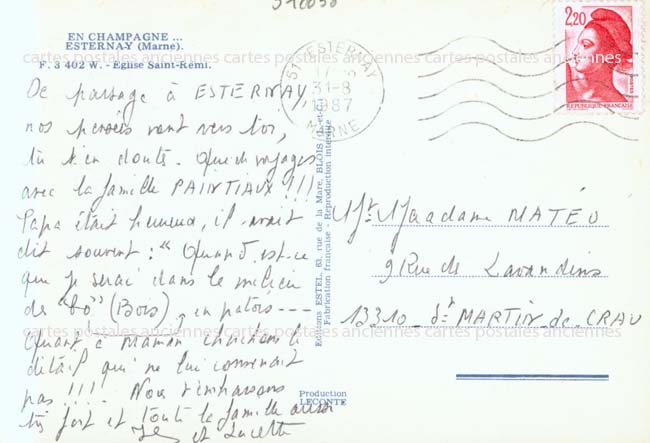 EN CHAMPAGNE ...
ESTERNAY (Marne).
F. 3 402 W. - Eglise Saint-Remi.
De passage à ESTERNAY,
nos pensées vont vers toi,
tu t'en doute. Que de voyages
avec la famille PAINTIAUX !!!
Papa était heureux, il avait
dit souvent : "Quand est-ce
que je serai dans le milieu
de "bô" (Bois), en patois ----
Quant à Maman cherchons le
détail qui ne lui convenait
pas !!!! Nous t'embrassons
très fort et toute la famille aussi
et Lucette
ESTERNAY
31-8
1987
MARNE
2,20
REPUBLIQUE FRANÇAISE
Editions ESTEL, 63, rue de la Mare, BLOIS (L.-et-C.)
Fabrication française - Reproduction interdite
Mr Madame MATÉO
9 Rue de Lavandins
13310 - St MARTIN-de-CRAU
Production
LECONTE
cartes postales anciennes cartes postales anciennes cartes postales anciennes
cartes postales anciennes cartes postales anciennes cartes postales anciennes
cartes postales anciennes cartes postales anciennes cartes postales anciennes